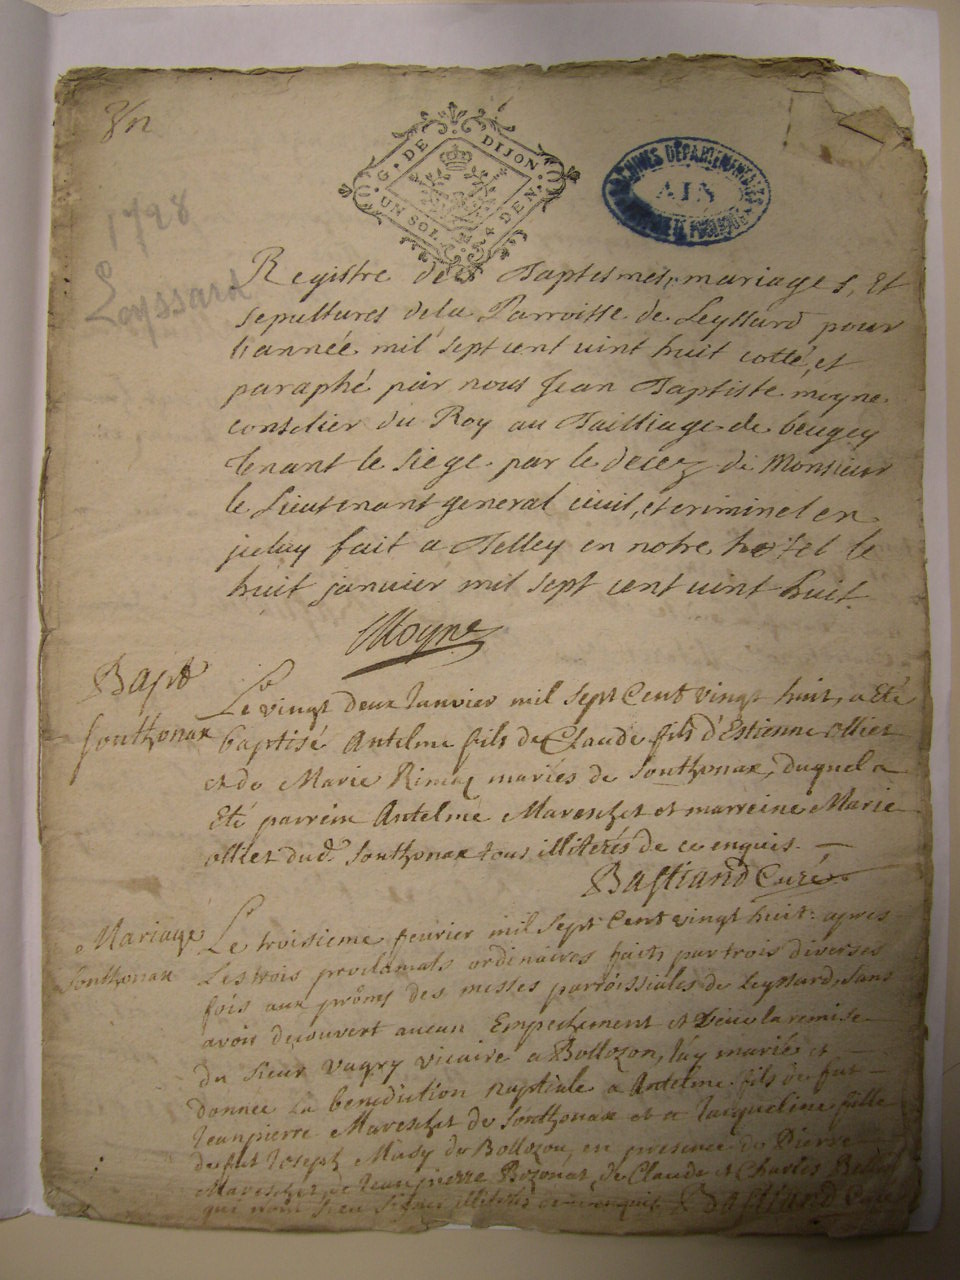 1728
Leyssard
G. DE DIJON
UN SOL 4 DEN.
ARCHIVES DÉPARTEMENTALES
AIN
Registre des Baptesmes, mariages, Et
sepultures dela Parroisse de Leyssard pour
l'année mil sept cent vint huit cotté, et
paraphé par nous Jean Baptiste moyne
conselier du Roy au Bailliage de beugey
tenant le siege par le decez de Monsieur
le Lieutenant general civil, et criminel en
iceluy fait a Belley en notre hotel le
huit janvier mil sept cent vint huit.
Moyne
Bapt
sonthonax
Le vingt deux Janvier mil sept Cent vingt huit, a Eté
baptisé Antelme fils de Claude fils d'Estienne ollier
et de Marie mariés de Sonthonax, duquel a
Eté parrein Antelme Mareschet et marreine Marie
olliet dud. Sonthonax tous illiterés de ce enquis.
Bastiand Curé
Mariage
Sonthonax
Le troisieme feurier mil sept Cent vingt huit apres
Les trois proclamats ordinaires faits par trois diverses
fois aux prônes des messes parroissiales de Leyssard, sans
avoir decouvert aucun Empechement et Veüe la remise
du sieur vugry vicaire a Bollozon, j'ay mariés et
donnée La benediction nuptiale a Antelme fils de fut
Jeanpierre Mareschet de Sonthonax et a Jacqueline fille
de fut Joseph Musy de Bollozon, en presence de Pierre
Mareschet, de Jeanpierre de Claude et Charles
qui n'ont sceu signer illiterés de ce enquis. Bastiand Curé